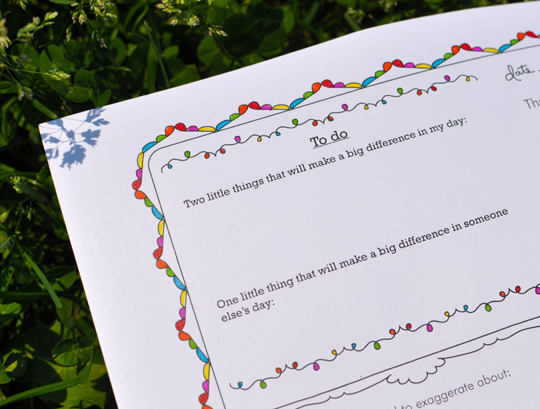 date
Th
To do
Two little things that will make a big difference in my day:
One little thing that will make a big difference in someone
else's day:
to exaggerate about: